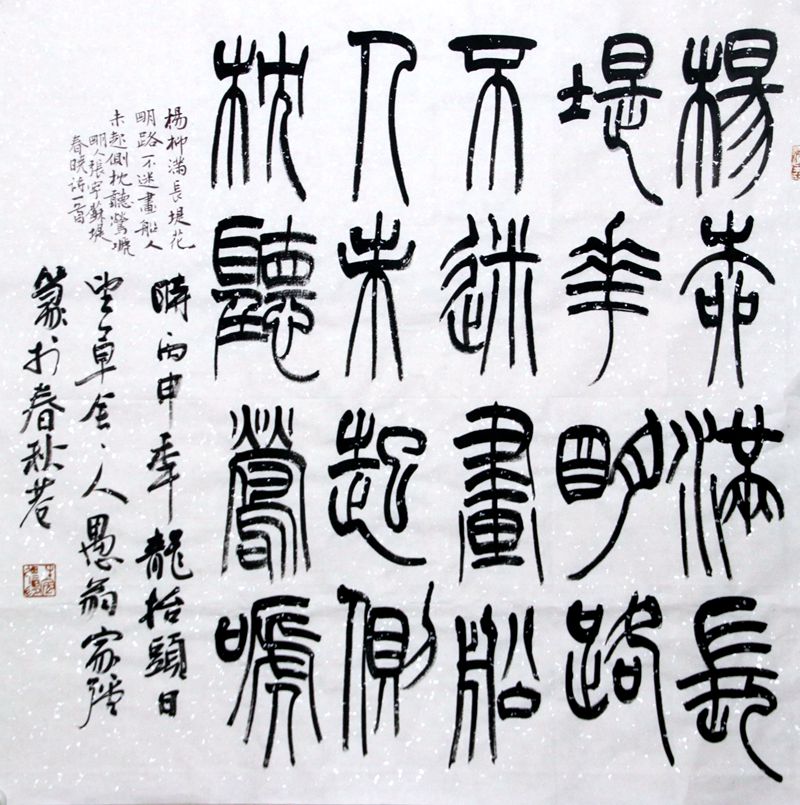 楊柳滿長
堤華明路
不迷畫船
人未起側
枕聽鶯嗁
楊柳滿長堤花
明路不迷畫船人
未起側枕聽鶯嗁
明人張寧蘇堤
春曉詩一首
時丙申年龍抬頭日
望草舍人愚翁家
篆於春秋